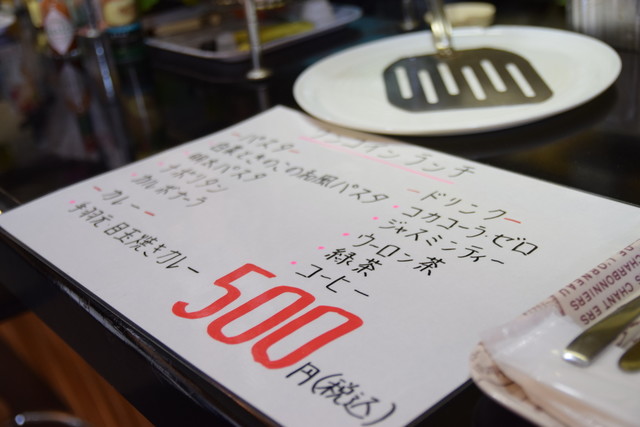 ワンコイン ランチ
ーパスター
白菜ときのこの和風パスタ
明太パスタ
ナポリタン
カルボナーラ
ーカレーー
手羽元 目玉焼きカレー
ードリンクー
コカコーラ・ゼロ
ジャスミンティー
ウーロン茶
緑茶
コーヒー
500円(税込)
CHARBONNIERS
CHANTIERS